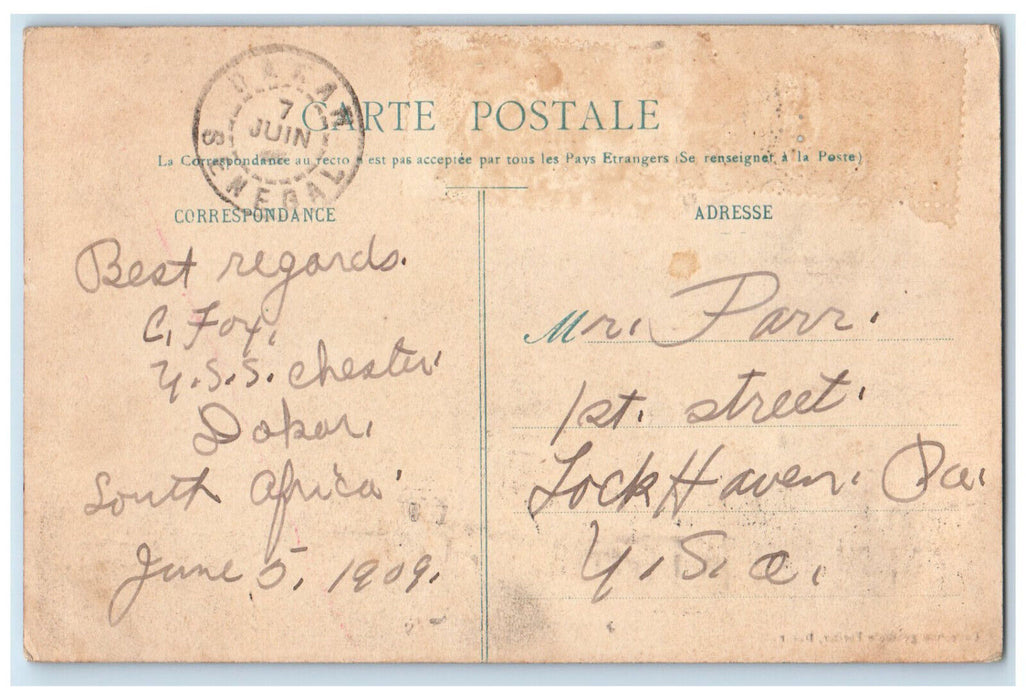 DAKAR
7
JUIN
SENEGAL
CARTE POSTALE
La Correspondance au recto n'est pas acceptée par tous les Pays Etrangers (Se renseigner à la Poste)
CORRESPONDANCE
Best regards.
C. Fox,
U.S.S. Chester.
Dakar,
South Africa.
June 5, 1909.
ADRESSE
Mr. Parr.
1st. street.
Lock Haven. Pa.
U.S.a.